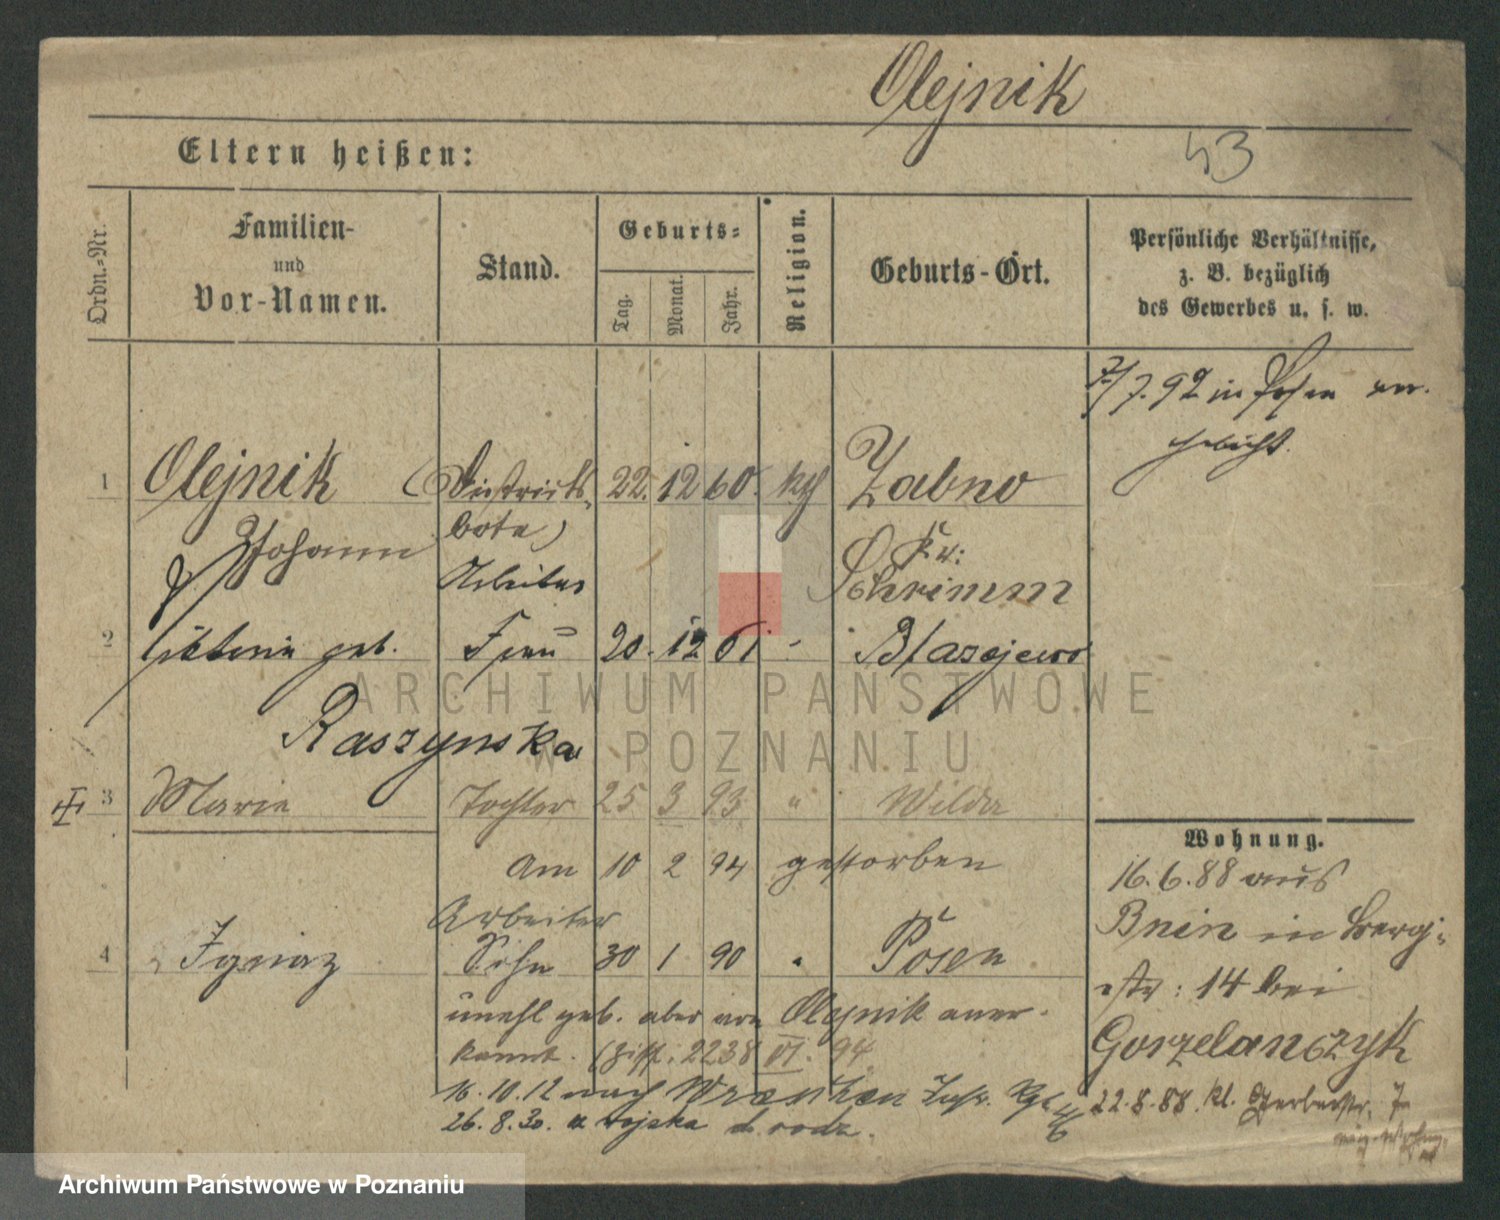 Olejnik
43
Eltern heißen:
Ordn.-Nr.
Familien-
und
Vor-Namen.
Stand.
Geburts-
Tag.
Monat.
Jahr.
Religion.
Geburts-Ort.
Persönliche Verhältnisse,
z. B. bezüglich
des Gewerbes u. s. w.
7/7.92 in Posen
1 Olejnik (Distrikts- 22. 12 60. kth Zabno
Johann bote) Kr:
Arbeiter Schrimm
2 geb. Frau 20. 12 61 Błazejewo
Raszynska
3 Marie Tochter 25 3 93 " Wilda
am 10 2 94 gestorben
Arbeiter
4 Ignaz Sohn 30 1 90 " Posen
unehl geb. aber von Olejnik aner-
kannt. 2238 VI. 94
16.10.12 nach
26.8.30. z wojska d. rodz.
Wohnung.
16.6.88 aus
Bnin in Berg-
str: 14 bei
Gorzelanczyk
22.8.88. kl. Gerberstr. 7
ARCHIWUM PAŃSTWOWE
W POZNANIU
Archiwum Państwowe w Poznaniu